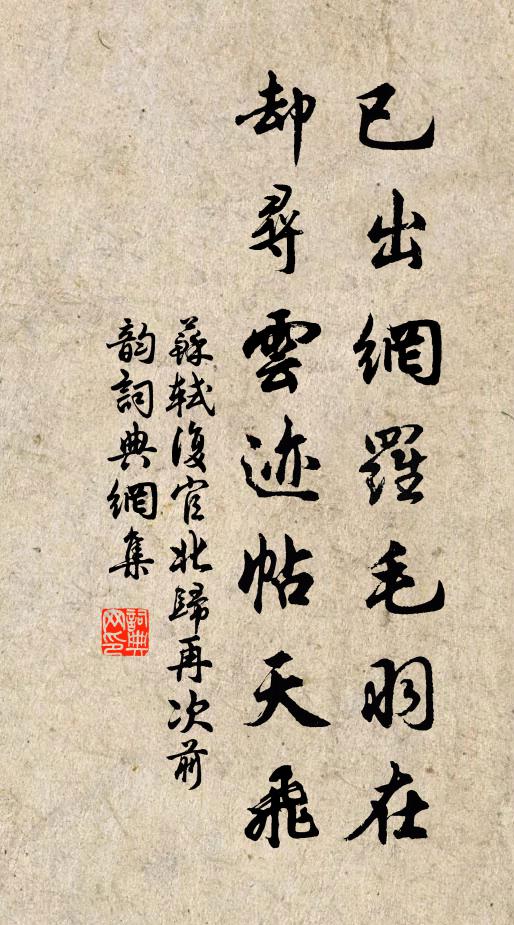 已出網羅毛羽在
却尋雲迹帖天飛
蘇軾復官北歸再次前
韵詞典網集
詞典網印